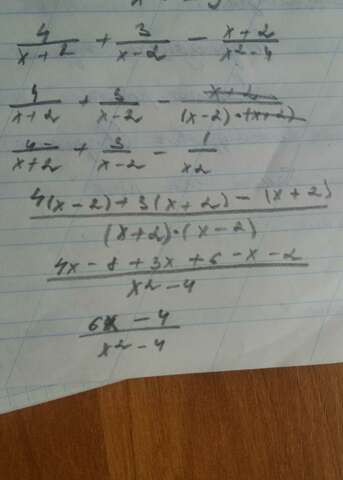 4/(x+2) + 3/(x-2) - (x+2)/(x²-4)
4/(x+2) + 3/(x-2) - (x+2)/((x-2)·(x+2))
4/(x+2) + 3/(x-2) - 1/(x2)
(4(x-2)+3(x+2)-(x+2))/((x+2)·(x-2))
(4x-8+3x+6-x-2)/(x²-4)
(6x-4)/(x²-4)